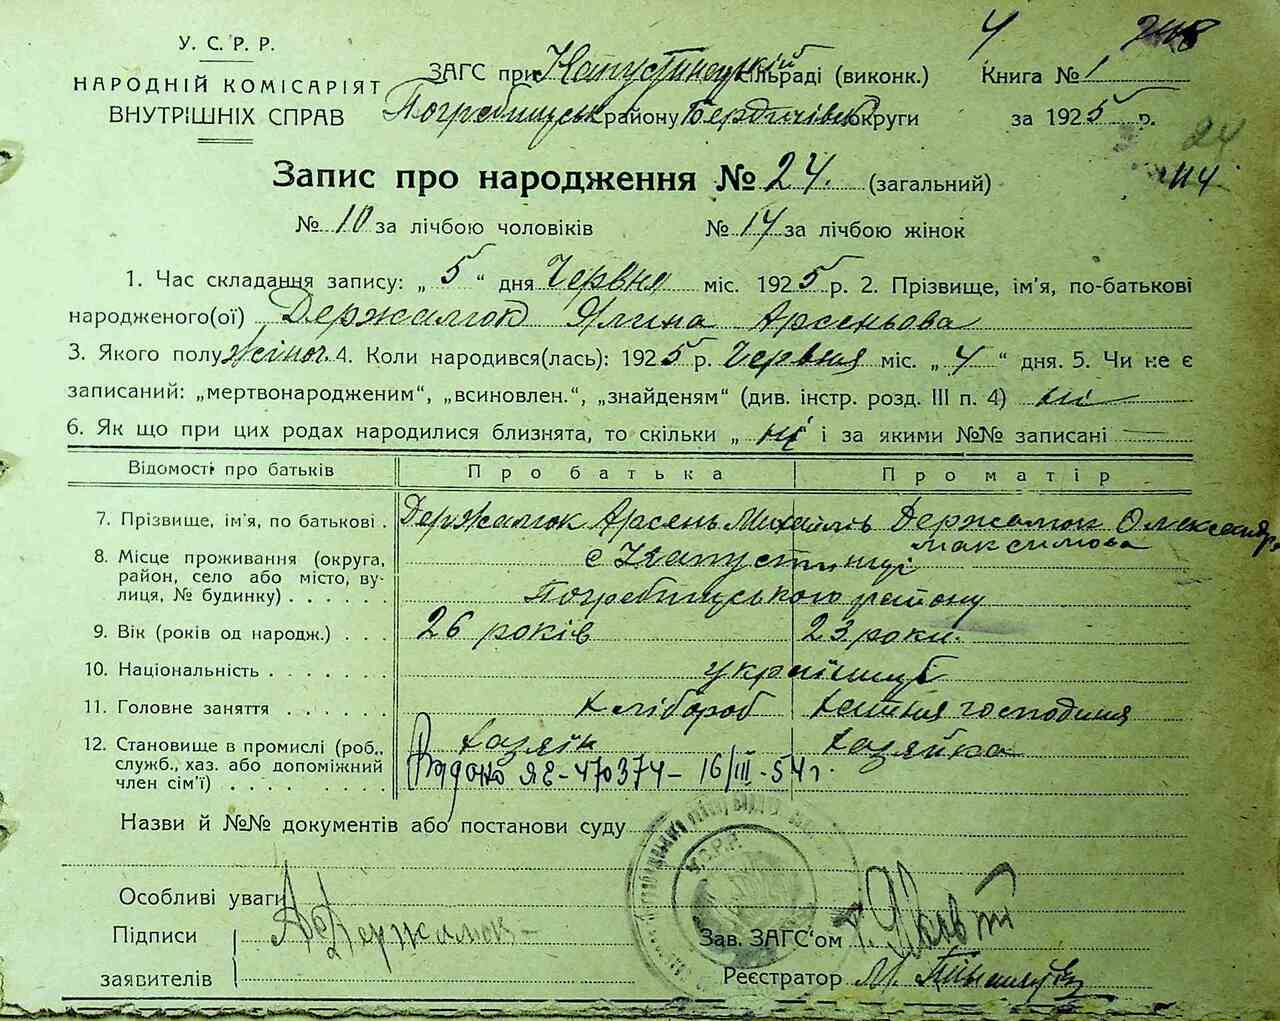 4 248
У. С. Р. Р.
НАРОДНІЙ КОМІСАРІЯТ
ВНУТРІШНІХ СПРАВ
ЗАГС при Капустинецькій сільраді (виконк.) Книга № 1
Погребищськ району Бердичівськ округи за 1925 р.
24
114
Запис про народження № 24. (загальний)
№ 10 за лічбою чоловіків № 14 за лічбою жінок
1. Час складання запису: „ 5 “ дня Червня міс. 1925 р. 2. Прізвище, ім'я, по-батькові
народженого(ої) Держалюк Ялина Арсеньова
3. Якого полу жіноч. 4. Коли народився(лась): 1925 р. Червня міс. „ 4 “ дня. 5. Чи не є
записаний: „мертвонародженим“, „всиновлен.“, „знайденям“ (див. інстр. розд. III п. 4) ні
6. Як що при цих родах народилися близнята, то скільки „ ні і за якими №№ записані —
Відомості про батьків Про батька Про матір
7. Прізвище, ім'я, по батькові . Держалюк Арсень Михайлів Держалюк Олександра
Максимова
8. Місце проживання (округа, с Капустинці
район, село або місто, ву-
лиця, № будинку) . . . . . . Погребищського району
9. Вік (років од народж.) . . . 26 років 23 роки.
10. Національність . . . . . . . українці
11. Головне заняття . . . . . . хлібороб хатня господиня
12. Становище в промислі (роб., хазяїн хазяйка
служб., хаз. або допоміжний
член сім'ї) . . . . . . . . . Видано ЯЕ-470374- 16/III-54 г.
Назви й №№ документів або постанови суду
У.С.Р.Р.
Особливі уваги
Підписи А Держалюк
Зав. ЗАГС'ом
заявителів
Реєстратор М.